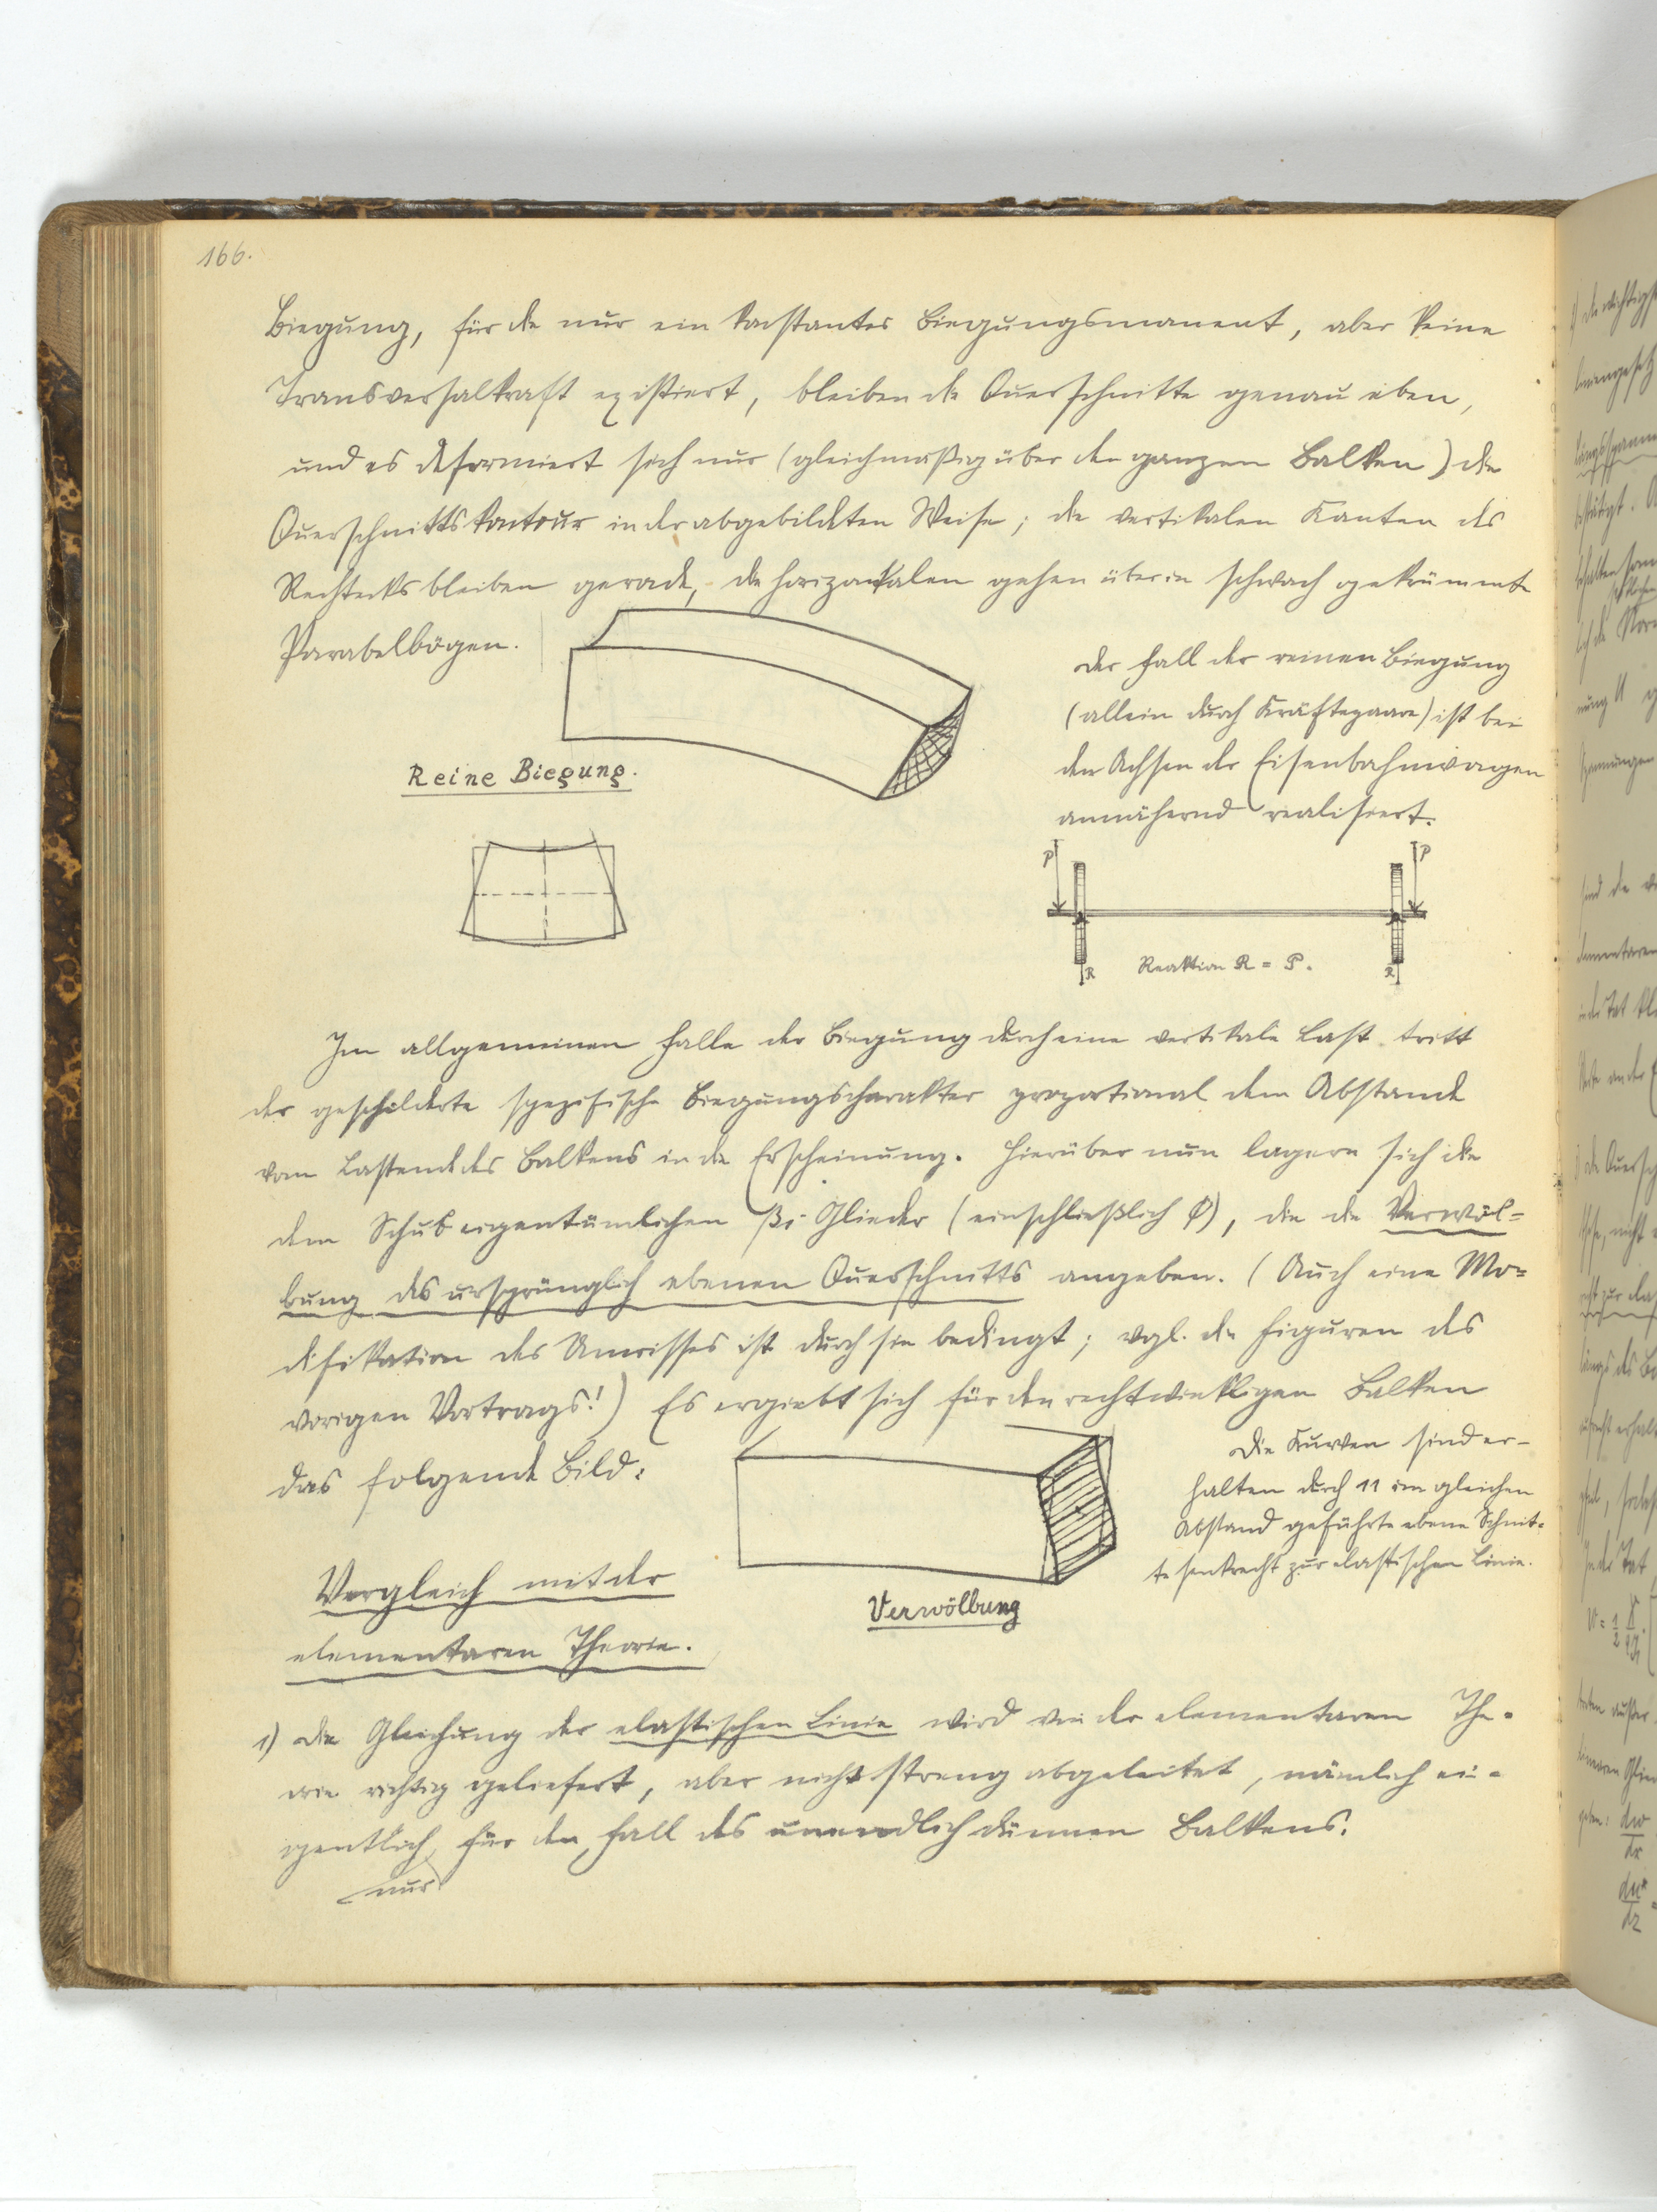 166.
Biegung, für die nur ein konstantes Biegungsmoment, aber keine
Transversalkraft existiert, bleiben die Querschnitte genau eben,
und es deformiert sich nur (gleichmäßig über den ganzen Balken) die
Querschnittskontour in der abgebildeten Weise; die vertikalen Kanten des
Rechtecks bleiben gerade, die horizontalen gehen über in schwach gekrümmte
Parabelbögen.
Der Fall der reinen Biegung
(allein durch Kräftepaare) ist bei
den Achsen der Eisenbahnwagen
annähernd realisiert.
Reine Biegung.
P P
R Reaktion R = P. R
Im allgemeinen Falle der Biegung durch eine vertikale Last tritt
der geschilderte spezifische Biegungscharakter proportional dem Abstande
vom Lastende des Balkens in die Erscheinung. Hierüber nun lagern sich die
dem Schub eigentümlichen Glieder (einschließlich ϕ), die die Verwöl=
bung des ursprünglich ebenen Querschnitts angeben. (Auch eine Mo=
difikation des Umrisses ist durch sie bedingt; vgl. die Figuren des
vorigen Vortrags!) Es ergiebt sich für den rechtwinkligen Balken
das folgende Bild:
Die Kurven sind er-
halten durch 11 im gleichen
Abstand geführte ebene Schnit=
te senkrecht zur elastischen Linie.
Verwölbung
Vergleich mit der
elementaren Theorie.
1) Die Gleichung der elastischen Linie wird von der elementaren The=
orie richtig geliefert, aber nicht streng abgeleitet, nämlich ei=
gentlich für den Fall des unendlich dünnen Balkens.
nur